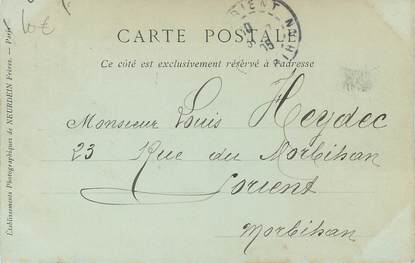 10€
CARTE POSTALE
Ce côté est exclusivement réservé à l'adresse
Monsieur Louis Heydec
23 Rue du Morbihan
Lorient
Morbihan
Etablissements Photographiques de NEURDEIN Frères. — Paris